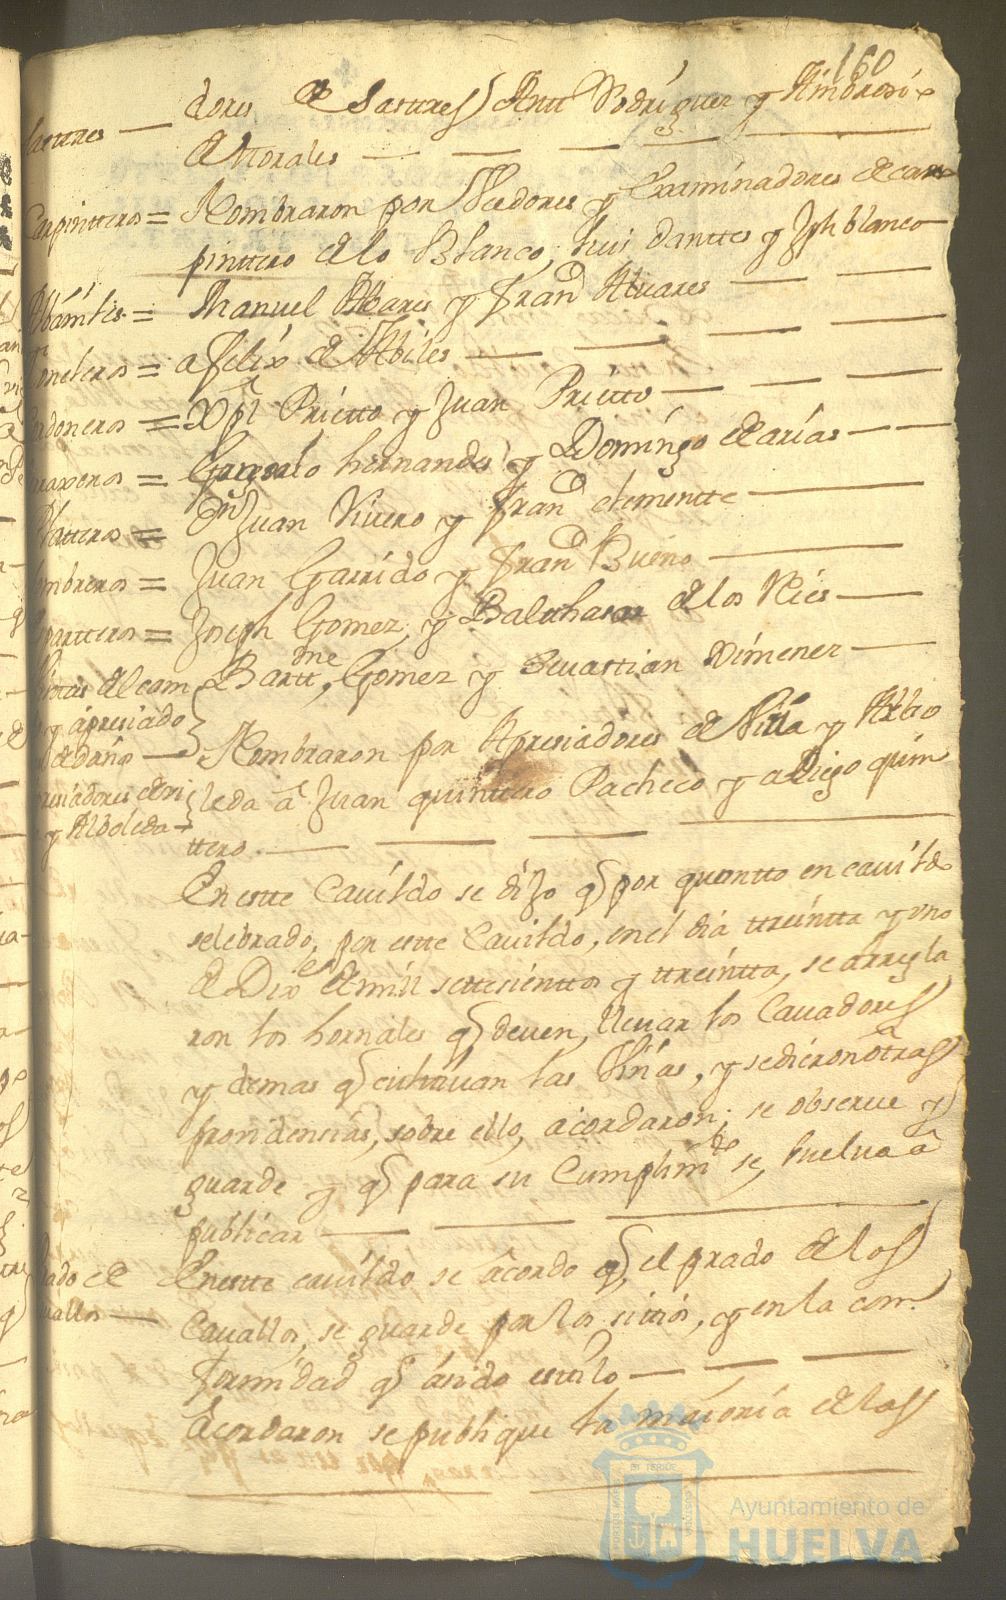 160
sastres — dores de Sastres Antt Rodriguez y Ambrosio
de Morales
Carpintteros = Nombraron por Veedores y Examinadores de car
pinttero de lo Blanco, Luis danttes y Jph blanco
Manuel Albares y Franco Alvares
toneleros = a Felix de Abiles
Cordoneros = Xptl Prietto y Juan Prietto
Gonzalo hernandes y Domingo de arias
Platteros = Dn Juan Rivero y Franco clementte
ombreros = Juan Garrido y Franco Bueno
espartteros = Joseph Gomez, y Balthasar de los Reies
Barttme Gomez y Sevastian Ximenez
y apresiado
de daño
Nombraron por Apresiadores de Viña y Arbo
y Alboleda
leda a Juan quinttero Pacheco y a Diego quin
ttero.
En estte Cavildo se dijo q por quantto en cavildo
selebrado, por estte Cavildo, en el dia treintta y uno
de Dixe de mill settesienttos y treintta, se arregla
ron los hornales q deven, llevar los Cavadores
y demas q cultiuan las Viñas, y se dieron otras
providensias, sobre ello, acordaron, se observe y
guarde y q para su Cumplimto se, buelva a
publicar
Prado de
cavallos —
En estte cavildo se acordo q, el prado de los
Cavallos, se guarde por los sitios, y en la con
formidad q a sido estilo
Acordaron se publique la maioria de las
Ayuntamiento de
HUELVA